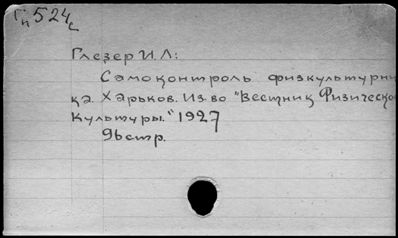 524
Глезер И.Л:
Самоконтроль физкультурни
ка. Харьков. Из-во "Вестник Физическо
Культуры." 1927
96 стр.